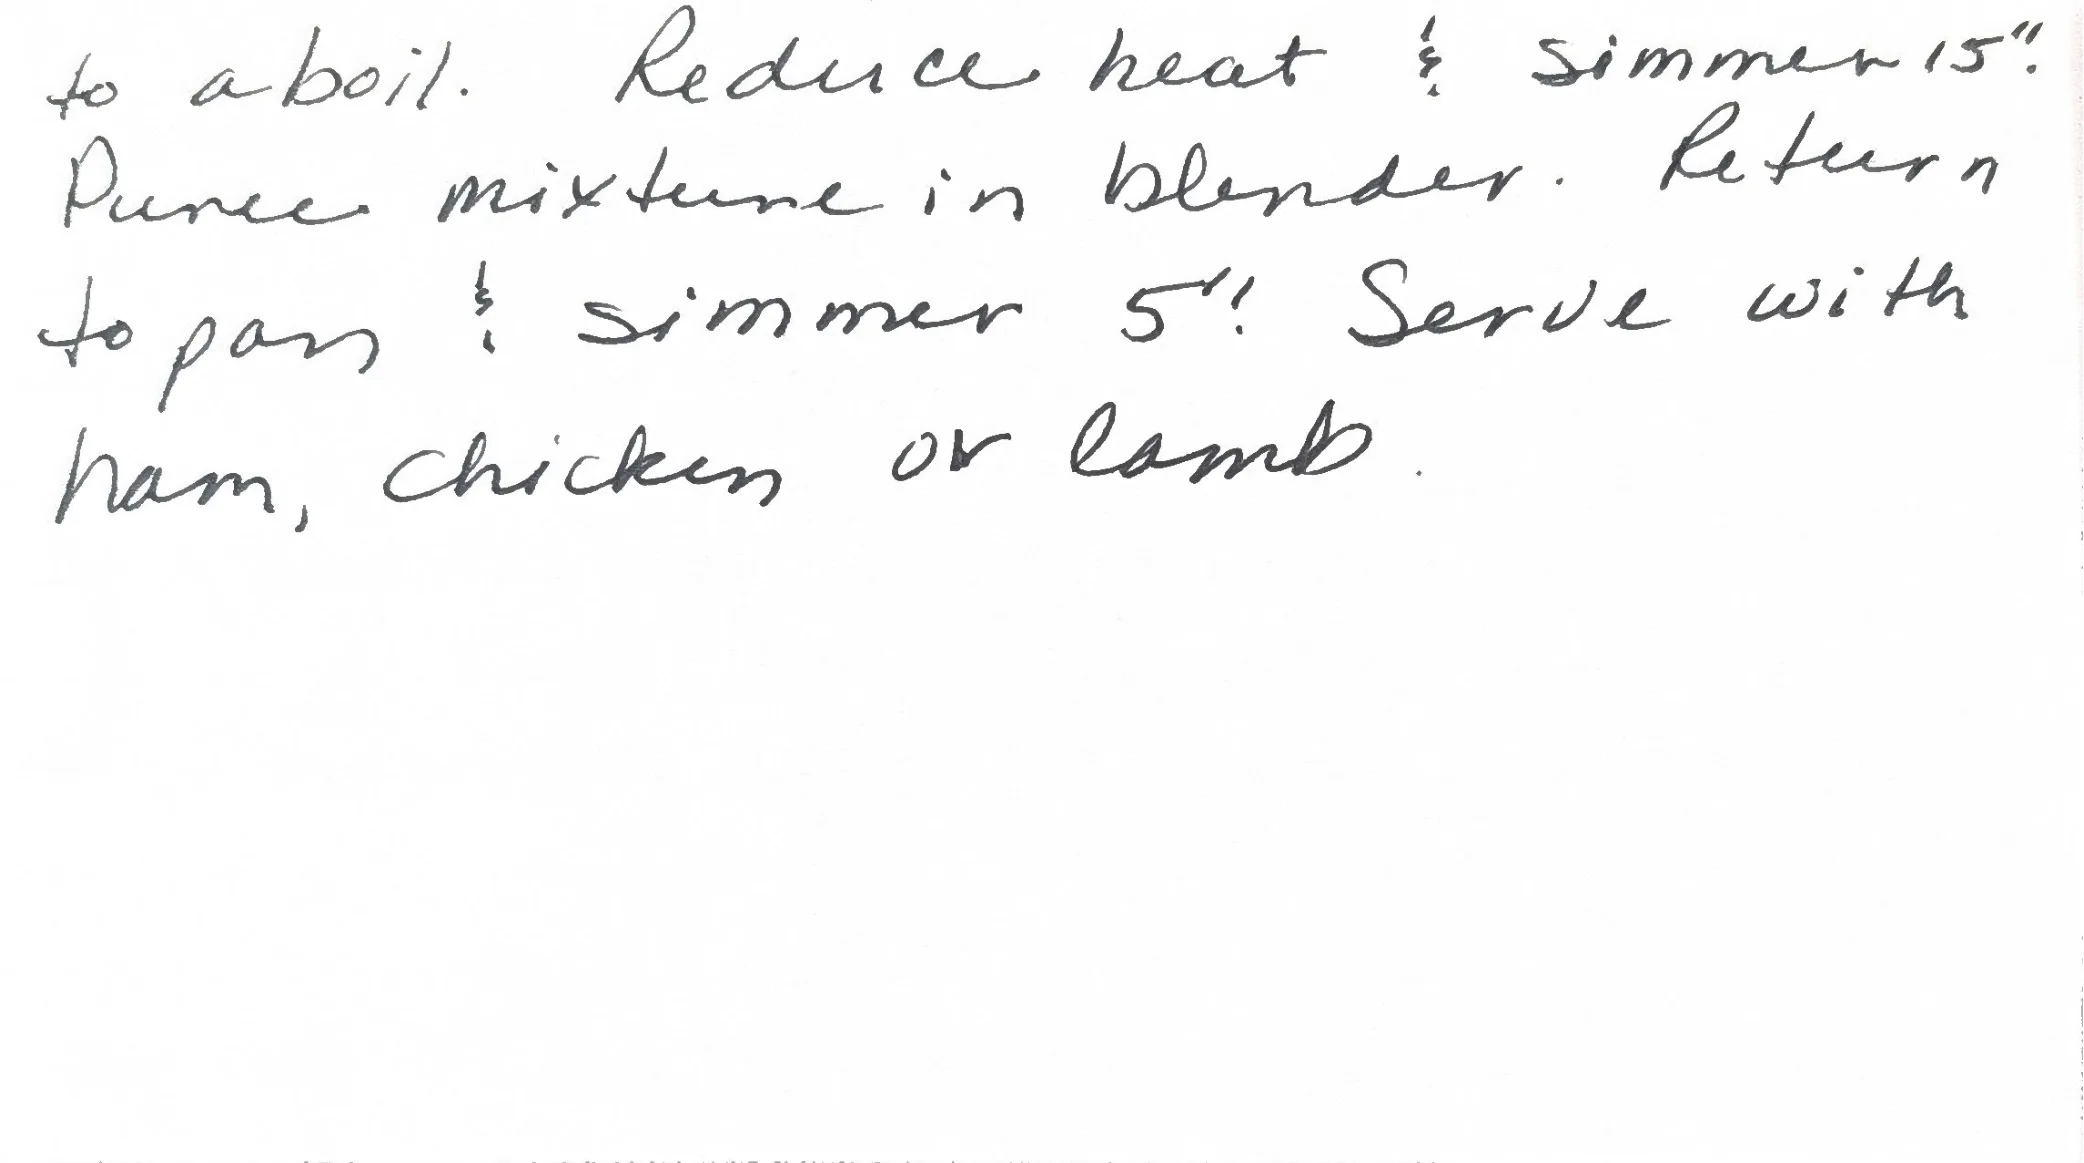 to a boil. Reduce heat & simmer 15".
Puree mixture in blender. Return
to pan & simmer 5". Serve with
ham, chicken or lamb.